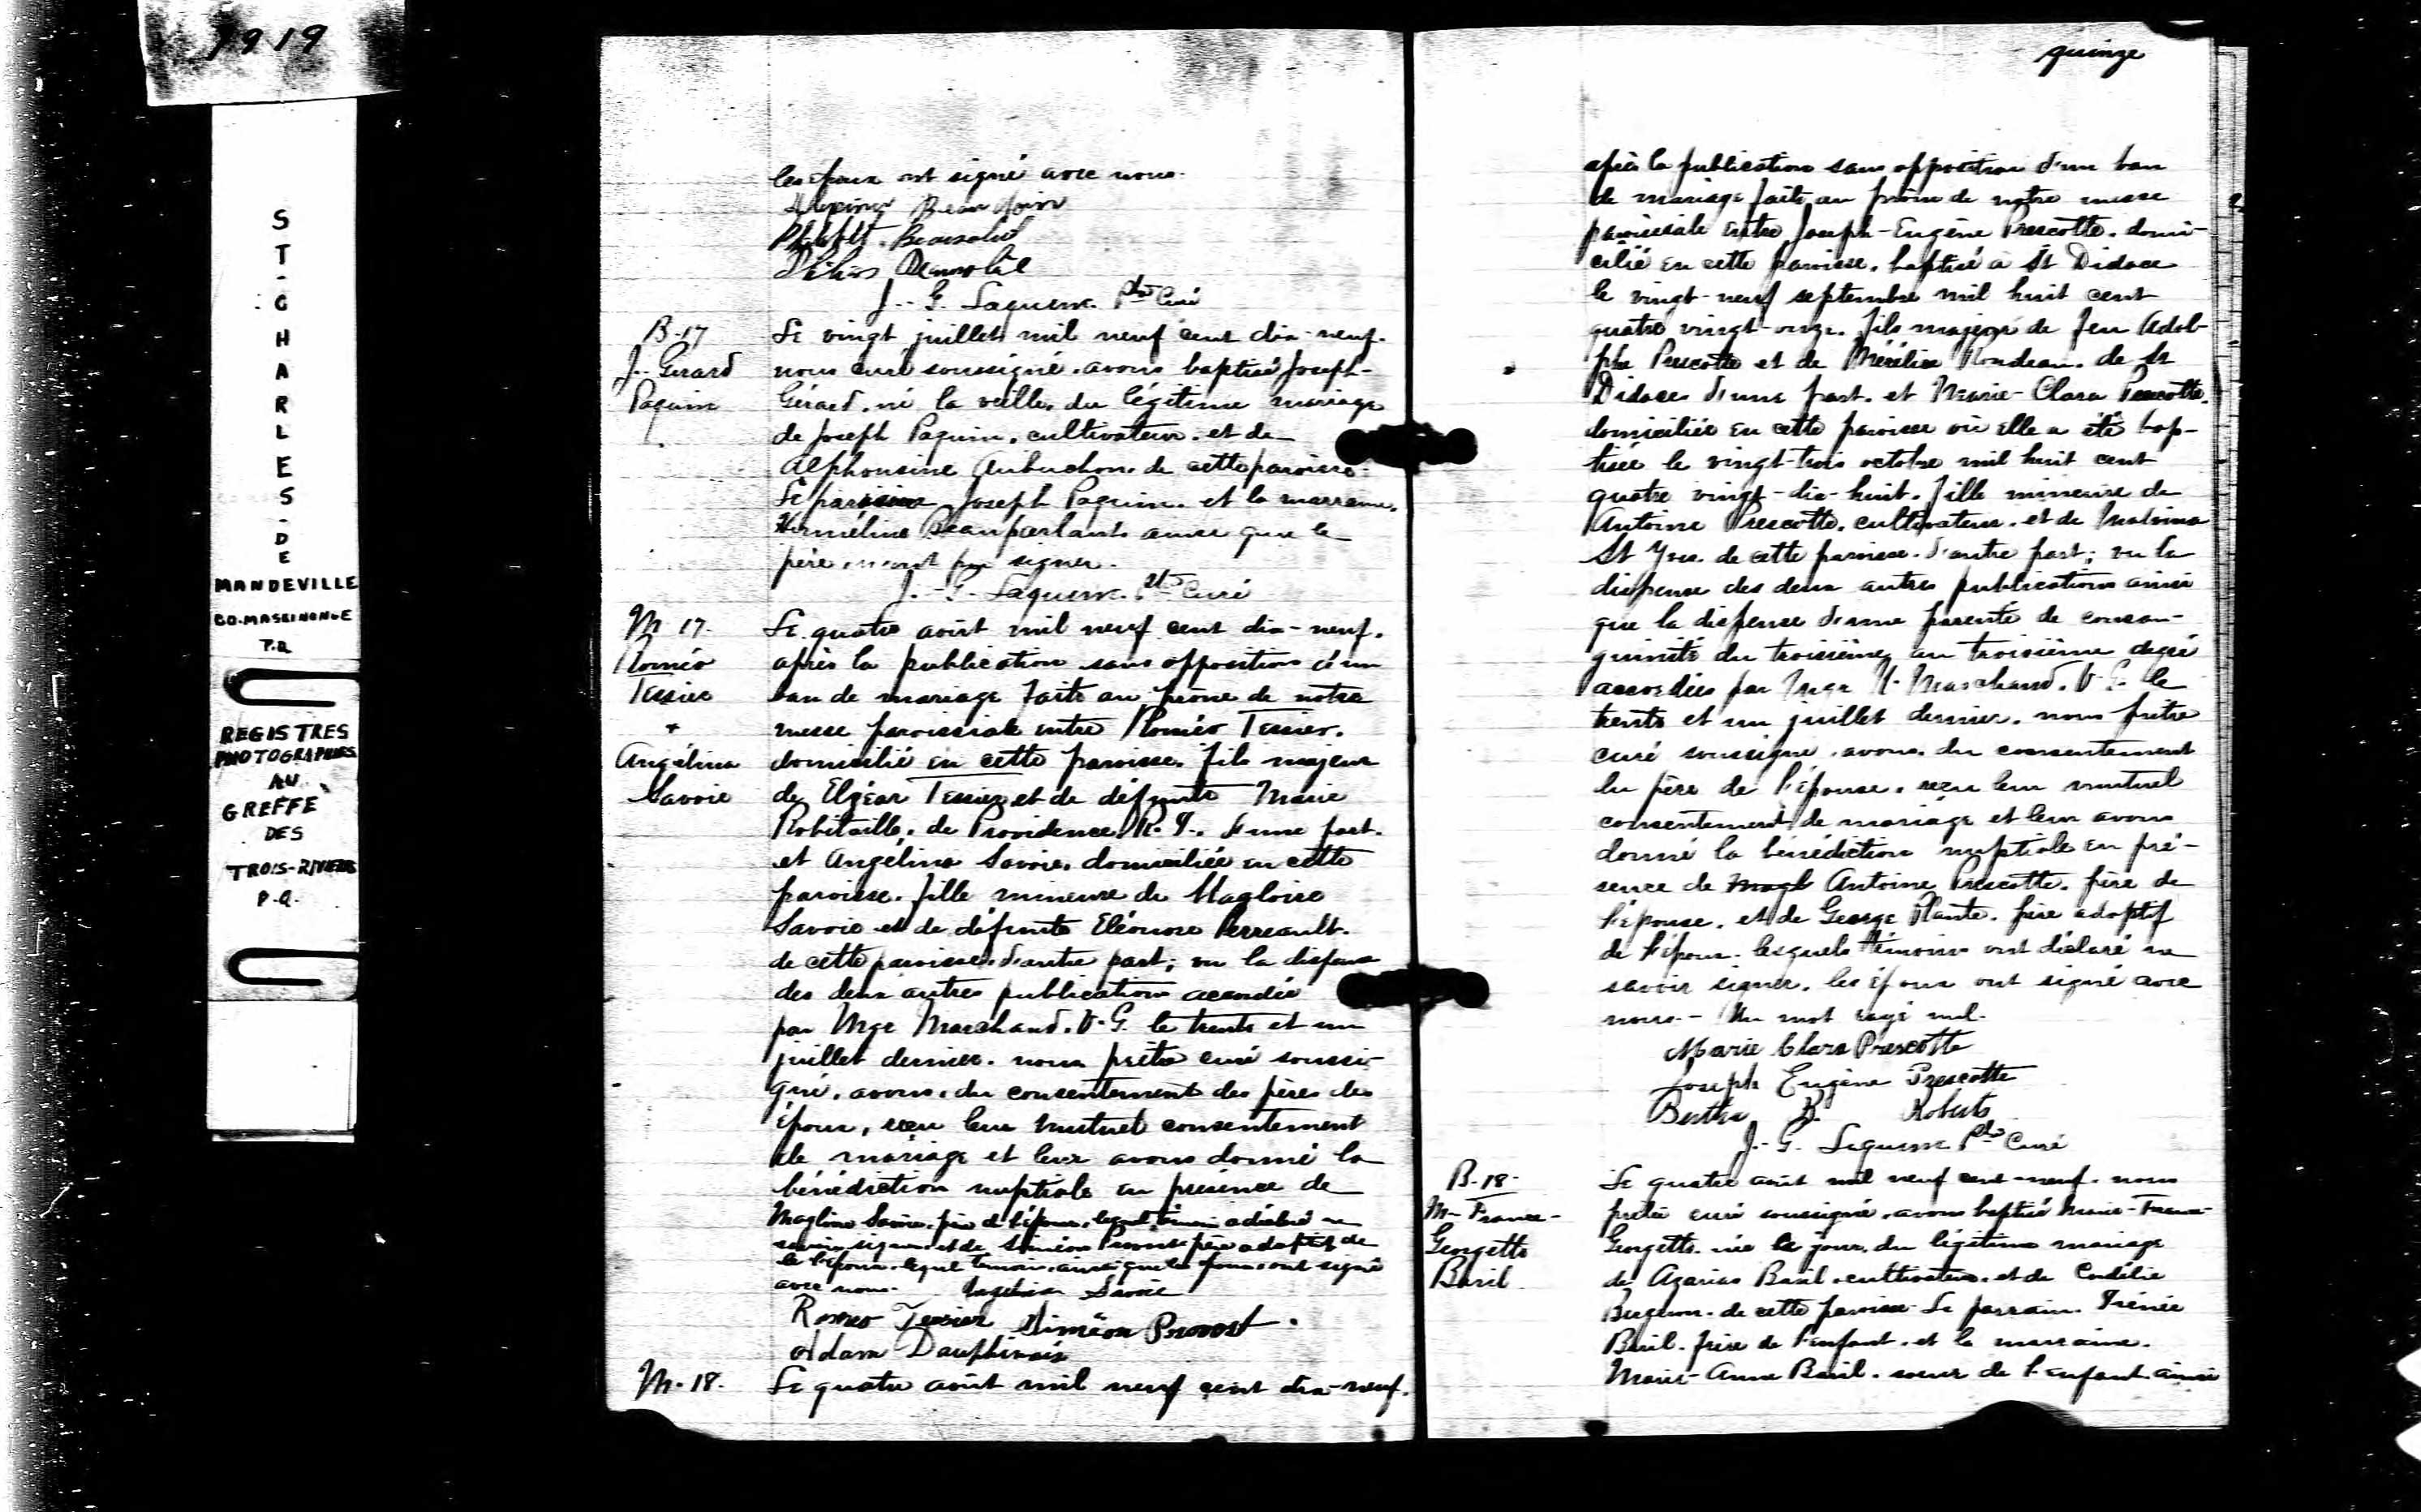 1919
ST-CHARLES-DE
MANDEVILLE
CO. MASKINONGE
P.Q.
REGISTRES
PHOTOGRAPHIES
AU
GREFFE
DES
TROIS-RIVIERES
P.Q.
les époux ont signé avec nous.
J.-G. Laquerre Ptre Curé
B-17
J.-Gérard
Paquin
Le vingt juillet mil neuf cent dix-neuf.
nous curé soussigné, avons baptisé Joseph-
Gérard, né la veille, du légitime mariage
de Joseph Paquin, cultivateur, et de
Alphonsine Aubuchon de cette paroisse.
Le parrain Joseph Paquin, et la marraine,
Herméline Beauparlant ainsi que le
père, n'ont pu signer.
J.-G. Laquerre. Ptre Curé
M 17.
Roméo
Tessier
+
Angélina
Savoie
Le quatre août mil neuf cent dix-neuf.
après la publication sans opposition d'un
ban de mariage faite au prône de notre
messe paroissiale entre Roméo Tessier,
domicilié en cette paroisse, fils majeur
de Elzéar Tessier et de défunte Marie
Robitaille, de Providence, R.I., d'une part.
et Angélina Savoie, domiciliée en cette
paroisse, fille mineure de Magloire
Savoie et de défunte Eléonore Perreault
de cette paroisse, d'autre part; vu la dispense
des deux autres publications accordée
par Mgr Marchand, V.G. le trente et un
juillet dernier, nous prêtre curé soussi-
gné, avons, du consentement des pères des
époux, reçu leur mutuel consentement
de mariage et leur avons donné la
bénédiction nuptiale en présence de
Magloire Savoie, père de l'épouse, lequel témoin a déclaré ne
savoir signer et de Siméon Provost père adoptif de
le l'époux, lequel témoin, ainsi que les époux ont signé
avec nous. Angélina Savoie
Romeo Tessier Siméon Provost.
Adam Dauphinais
M. 18.
Le quatre août mil neuf cent dix-neuf.
quinze
après la publication sans opposition d'un ban
de mariage faite au prône de notre messe
paroissiale entre Joseph-Eugène Prescotte, domi-
cilié en cette paroisse, baptisé à St Didace
le vingt-neuf septembre mil huit cent
quatre vingt-onze, fils majeur de feu Adol-
phe Prescotte et de Mérélise Rondeau, de St
Didace, d'une part, et Marie-Clara Prescotte,
domiciliée en cette paroisse où elle a été bap-
tisée le vingt-trois octobre mil huit cent
quatre vingt-dix-huit, fille mineure de
Antoine Prescotte, cultivateur, et de Malvina
St Yves, de cette paroisse, d'autre part; vu la
dispense des deux autres publications ainsi
que la dispense d'une parenté de consan-
guinité du troisième au troisième degré
accordées par Mgr Marchand, V.G. le
trente et un juillet dernier, nous prêtre
curé soussigné, avons, du consentement
du père de l'épouse, reçu leur mutuel
consentement de mariage et leur avons
donné la bénédiction nuptiale en pré-
sence de Magl Antoine Prescotte, père de
l'épouse, et de George Plante, père adoptif
de l'époux, lesquels témoins ont déclaré ne
savoir signer, les époux ont signé avec
nous.- Un mot rayé nul.
Marie Clara Prescotte
Joseph Eugène Prescotte
Bertha B. Roberts
J.-G. Laquerre Ptre Curé
B-18-
M-France-
Georgette
Baril
Le quatre août mil neuf cent-neuf, nous
prêtre curé soussigné, avons baptisé Marie-France-
Georgette, née le jour, du légitime mariage
de Azarias Baril, cultivateur, et de Cordélie
Bergeron, de cette paroisse. Le parrain, Irénée
Baril, frère de l'enfant, et la marraine,
Marie-Anne Baril, soeur de l'enfant ainsi